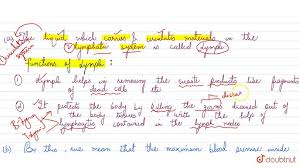 (a) The liquid which carries & circulates materials in the
Circulatory system
② lymphatic system is called lymph
functions of lymph :
① lymph helps in removing the waste products like fragments
of dead cells etc
disease
② It protects the body by killing the germs drained out of
the body tissues with the help of
lymphocytes contained in the lymph nodes
B-type
T-type
(b) By this, we mean that the maximum blood pressure inside